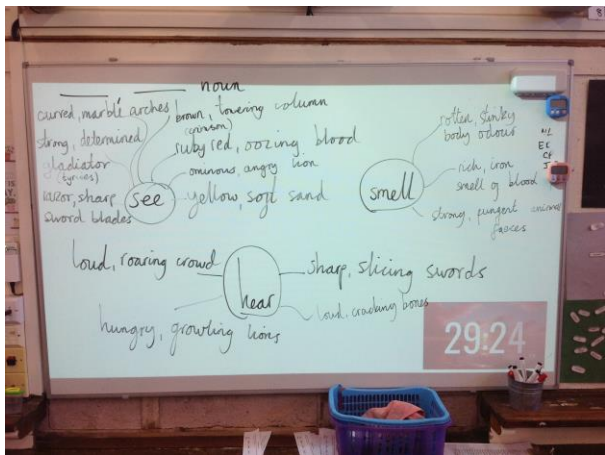 noun
curved, marble arches
strong, determined
gladiator
razor, sharp
sword blades
brown, towering column
(crimson)
ruby red, oozing blood
ominous, angry lion
yellow, soft sand
see
rotten, stinky
body odour
rich, iron
smell of blood
strong, pungent
faeces
smell
loud, roaring crowd
sharp, slicing swords
hungry, growling lions
loud, cracking bones
hear
29:24